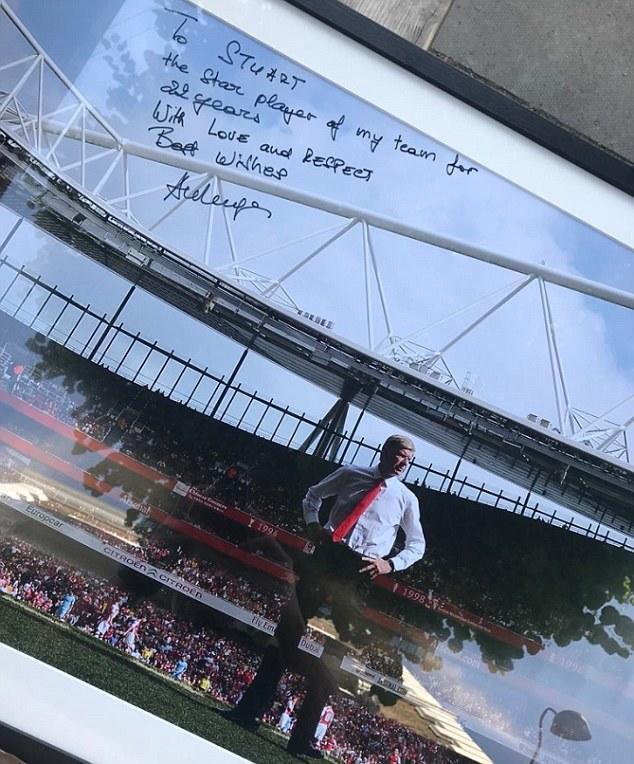 To STUART
the star player of my team for
22 years
With Love and RESPECT
Best Wishes
1994
1998
Arsenal
Europcar
CITROËN CITROËN
Fly Emi
Dubai